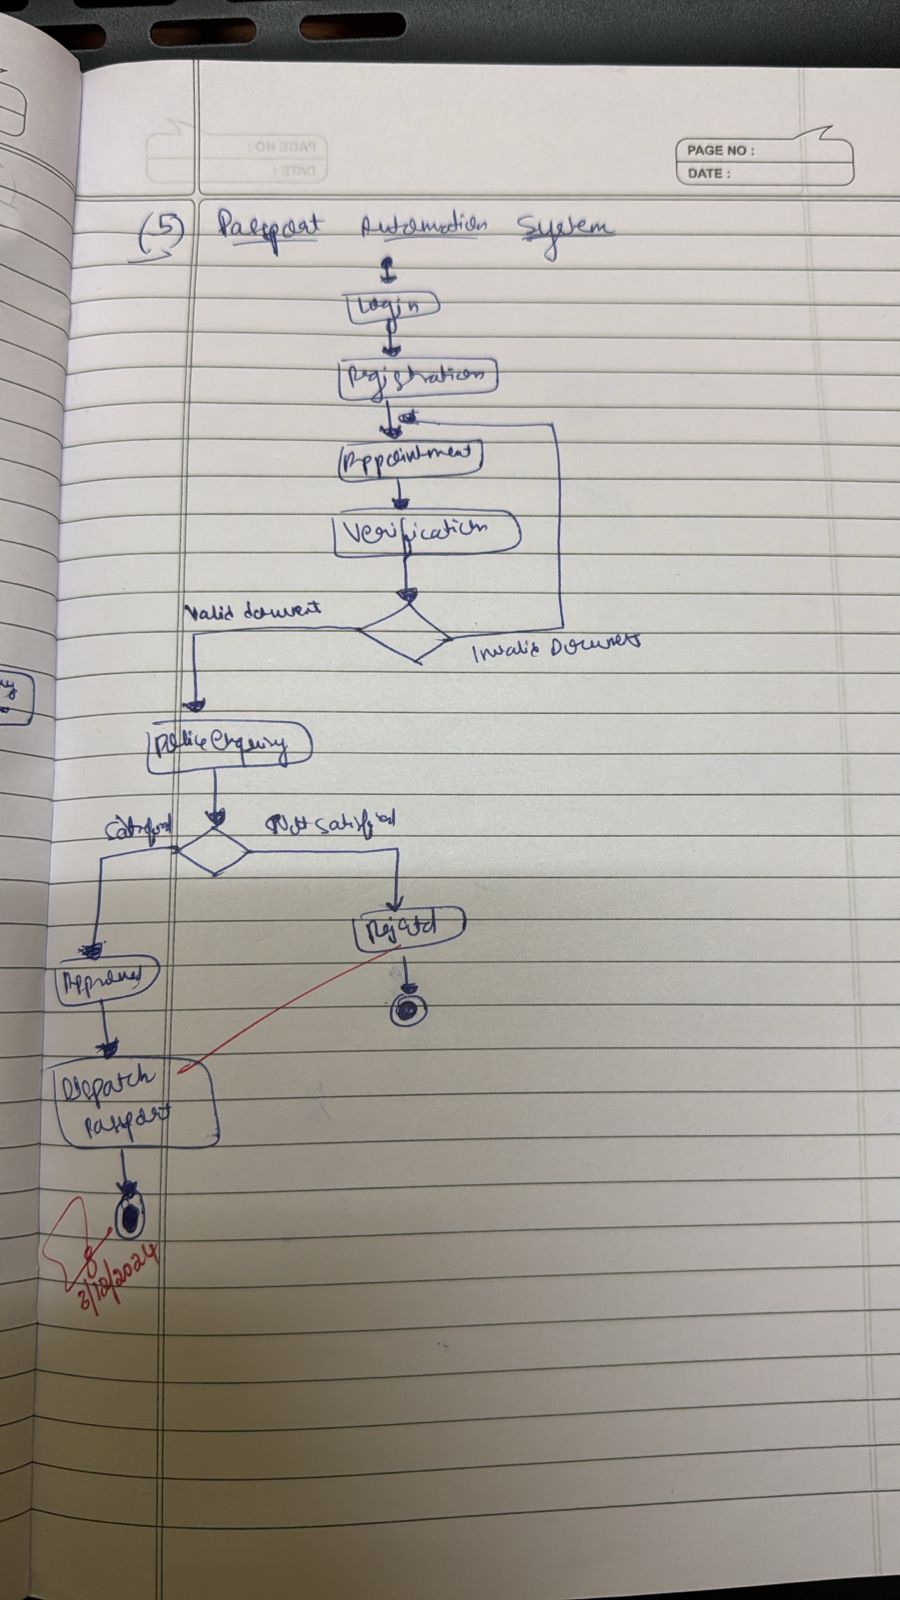 PAGE NO :
DATE :
(5) Passport Automation System
Login
Registration
Appointment
Verification
Valid document
Invalid Document
Police Enquiry
Satisfied
Not Satisfied
Rejected
Approved
Dispatch
Passport
3/10/2024